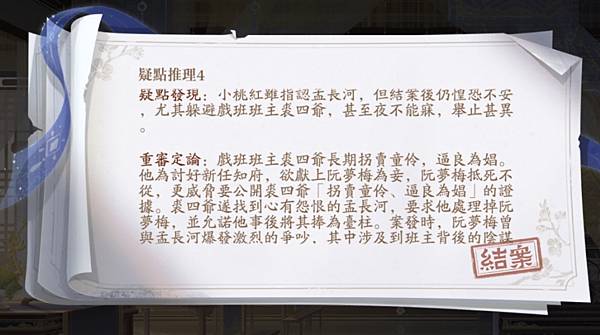 疑點推理4
疑點發現：小桃紅雖指認孟長河，但結案後仍惶恐不安
，尤其躲避戲班班主裘四爺，甚至夜不能寐，舉止甚異
。
重審定論：戲班班主裘四爺長期拐賣童伶，逼良為娼。
他為討好新任知府，欲獻上阮夢梅為妾，阮夢梅抵死不
從，更威脅要公開裘四爺「拐賣童伶、逼良為娼」的證
據。裘四爺遂找到心有怨恨的孟長河，要求他處理掉阮
夢梅，並允諾他事後將其捧為臺柱。案發時，阮夢梅曾
與孟長河爆發激烈的爭吵，其中涉及到班主背後的陰謀
結案